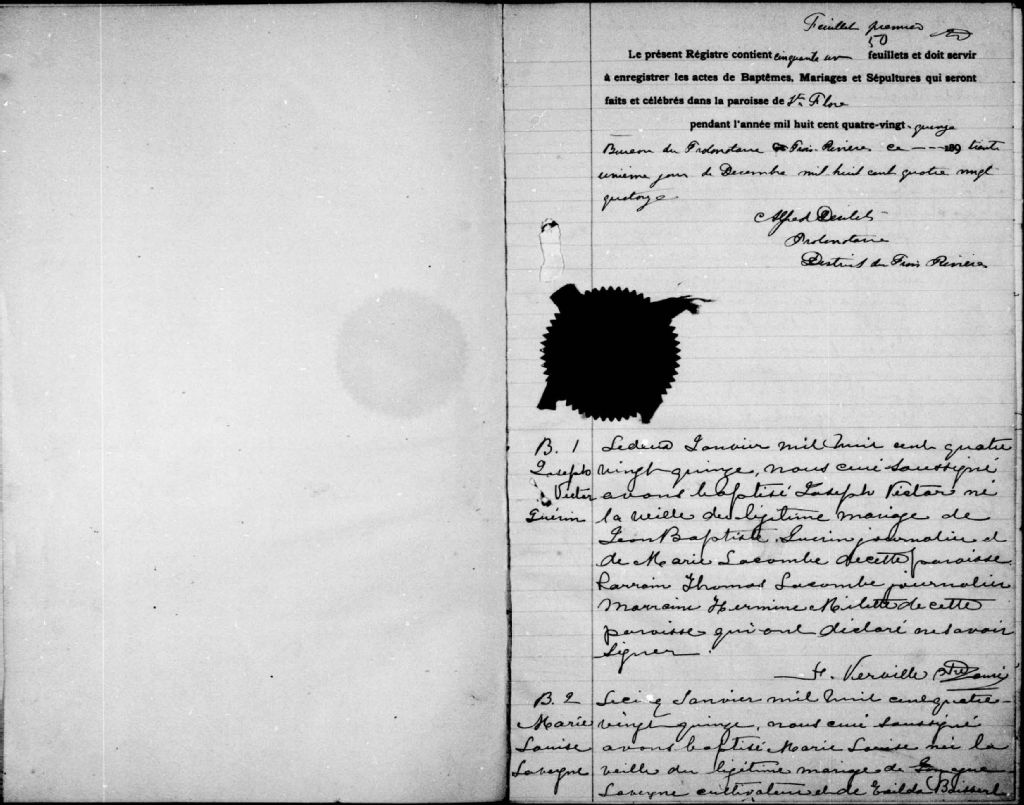 Feuillet premier
50
Le présent Régistre contient cinquante un feuillets et doit servir
à enregistrer les actes de Baptêmes, Mariages et Sépultures qui seront
faits et célébrés dans la paroisse de Ste Flore
pendant l'année mil huit cent quatre-vingt-quinze
Bureau du Protonotaire Trois-Rivières ce 189 trente
unième jour de Decembre mil huit cent quatre vingt
quatorze
Alfred Desilets
Protonotaire
District des Trois Rivières
B. 1
Joseph
Victor
Guérin
Le deux Janvier mil huit cent quatre
vingt quinze, nous curé soussigné
avons baptisé Joseph Victor né
la veille du légitime mariage de
Jean Baptiste Guérin journalier et
de Marie Lacombe de cette paroisse
Parrain Thomas Lacombe journalier
Marraine Hermine Milette de cette
paroisse qui ont déclaré ne savoir
signer.
H. Verville Ptre Curé
B. 2
Marie
Louise
Lavergne
Le cinq Janvier mil huit cent quatre-
vingt quinze, nous curé soussigné
avons baptisé Marie Louise née la
veille du légitime mariage de
Lavergne cultivateur et de Exilda